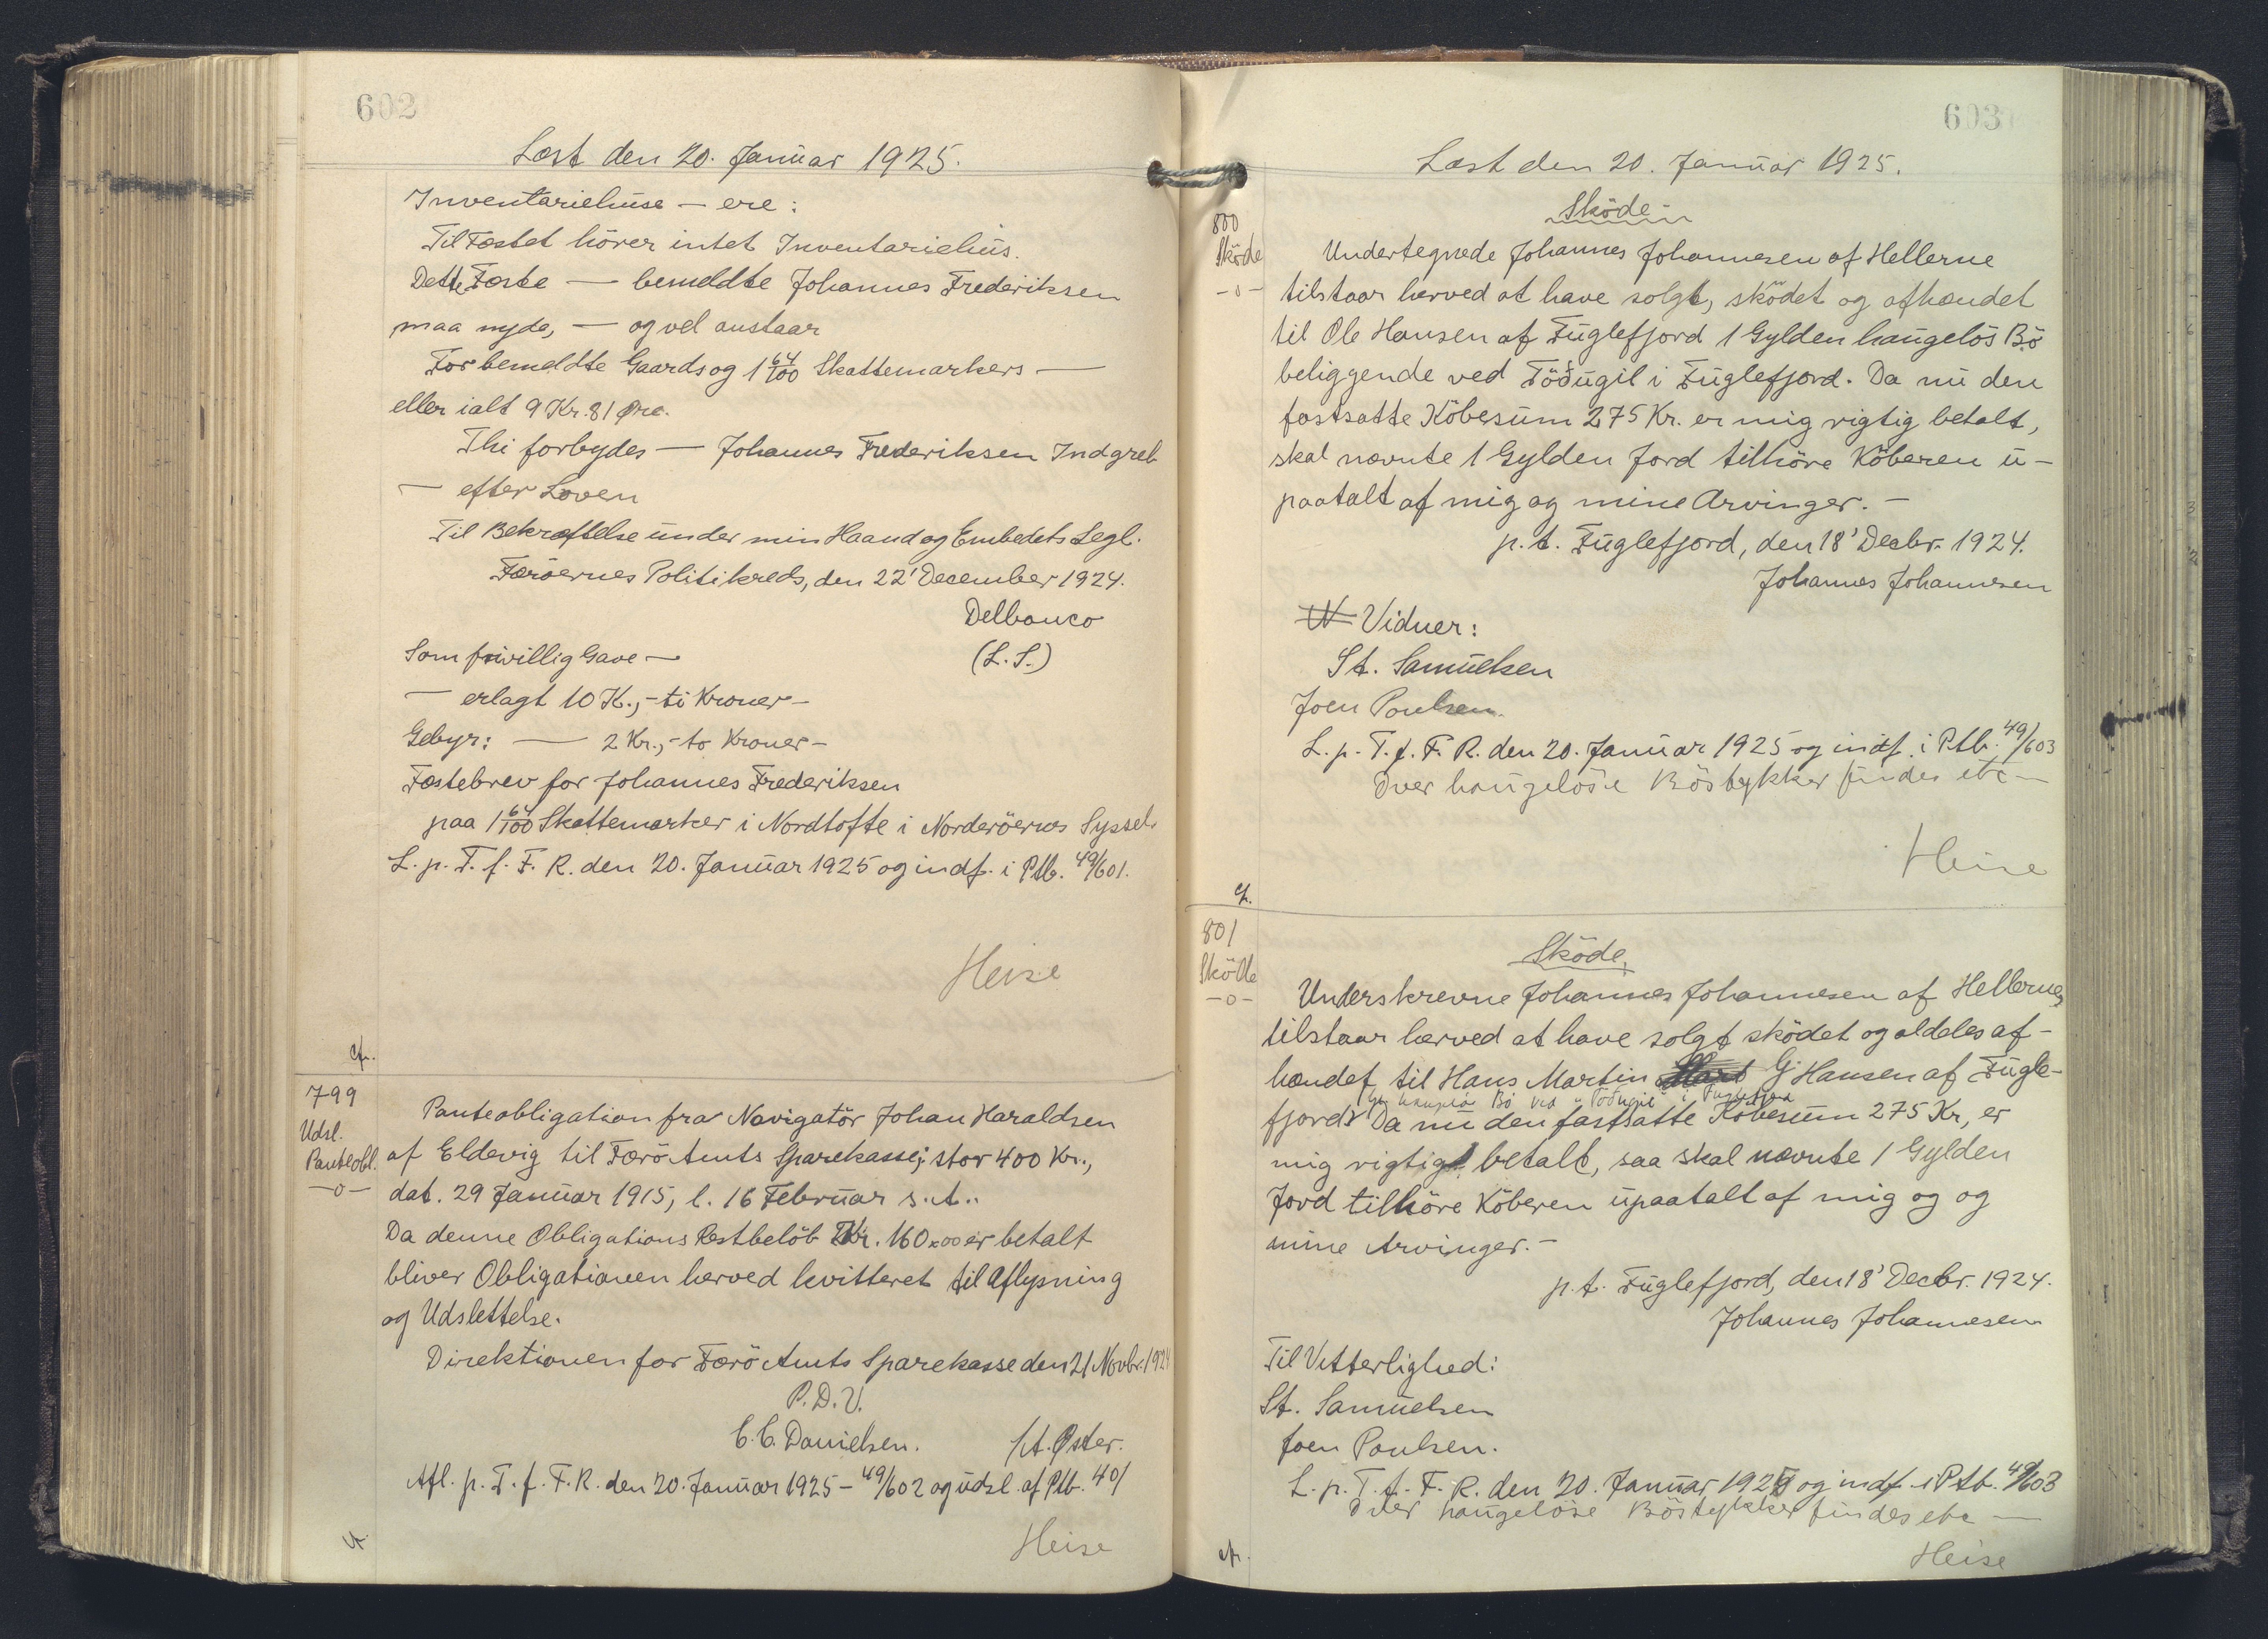 602
Læst den 20. Januar 1925.
Inventariehuse — ere:
Til Fæstet hører intet Inventariehus.
Dette Fæste — bemeldte Johannes Frederiksen
maa nyde, — og vel anstaar
For bemeldte Gaards og 1 64/100 Skattemarkers —
eller ialt 9 Kr. 81 Øre.
Thi forbydes — Johannes Frederiksen Indgreb
— efter Loven
Til Bekræftelse under min Haand og Embedets Segl.
Færöernes Politikreds, den 22' December 1924.
Delbanco
Som frivillig Gave — (L. S.)
— erlagt 10 K., - ti Kroner -
Gebyr: — 2 Kr., - to Kroner -
Fæstebrev for Johannes Frederiksen
paa 1 64/100 Skattemarker i Nordtofte i Norderöernes Syssel.
L. p. T. f. F. R. den 20. Januar 1925 og indf. i Ptb. 49/601.
Heise
cfr.
799
Udsl.
Panteobl.
-o-
Panteobligation fra Navigatör Johan Haraldsen
af Eldevig til Færö Amts Sparekasse; stor 400 Kr.,
dat. 29 Januar 1915, l. 16 Februar s. A..
Da denne Obligations Restbelöb Kr. 160,00 er betalt
bliver Obligationen herved kvitteret til Aflysning
og Udslettelse.
Direktionen for Færö Amts Sparekasse den 21 Novbr. 1924
P. D. V.
C. C. Danielsen. A. Øster.
Afl. p. T. f. F. R. den 20. Januar 1925 - 49/602 og udsl. af Ptb. 401
Heise
603
Læst den 20. Januar 1925.
800
Sköde
-o-
Sköde
Undertegnede Johannes Johannesen af Hellerne
tilstaar herved at have solgt, sködet og afhændet
til Ole Hansen af Fuglefjord 1 Gylden haugelös Bö
beliggende ved Föðugil i Fuglefjord. Da nu den
fastsatte Köbesum 275 Kr. er mig rigtig betalt,
skal nævnte 1 Gylden Jord tilhöre Köberen u-
paatalt af mig og mine Arvinger. -
p. t. Fuglefjord, den 18' Decbr. 1924.
Johannes Johannesen
Vidner:
St. Samuelsen
Joen Poulsen.
L. p. T. f. F. R. den 20. Januar 1925 og indf. i Ptb. 49/603
Over haugelöse Böstykker findes etc —
Heise
cfr.
801
Sköde
-o-
Sköde,
Underskrevne Johannes Johannesen af Hellerne,
tilstaar herved at have solgt sködet og aldeles af-
hændet til Hans Martin G Hansen af Fugle-
Bö ved "Föðugil" i Fuglefjord
fjord. Da nu den fastsatte Köbesum 275 Kr, er
mig rigtigt betalt, saa skal nævnte 1 Gylden
Jord tilhöre Köberen upaatalt af mig og og
mine Arvinger. -
p. t. Fuglefjord, den 18' Decbr. 1924.
Johannes Johannesen
Til Vitterlighed:
St. Samuelsen
Joen Poulsen.
L. p. T. f. F. R. den 20. Januar 1925 og indf. i Ptb. 49/603
Over haugelöse Böstykker findes etc —
Heise
cfr.